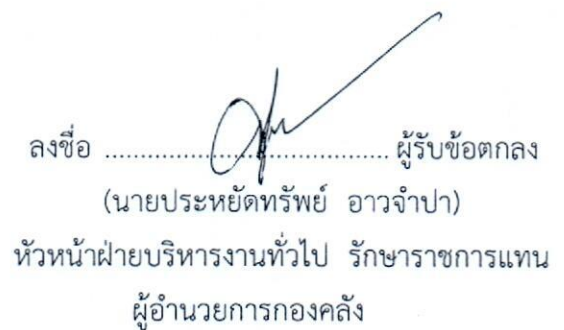 ลงชื่อ ........................................ ผู้รับข้อตกลง
(นายประหยัดทรัพย์ อาวจำปา)
หัวหน้าฝ่ายบริหารงานทั่วไป รักษาราชการแทน
ผู้อำนวยการกองคลัง